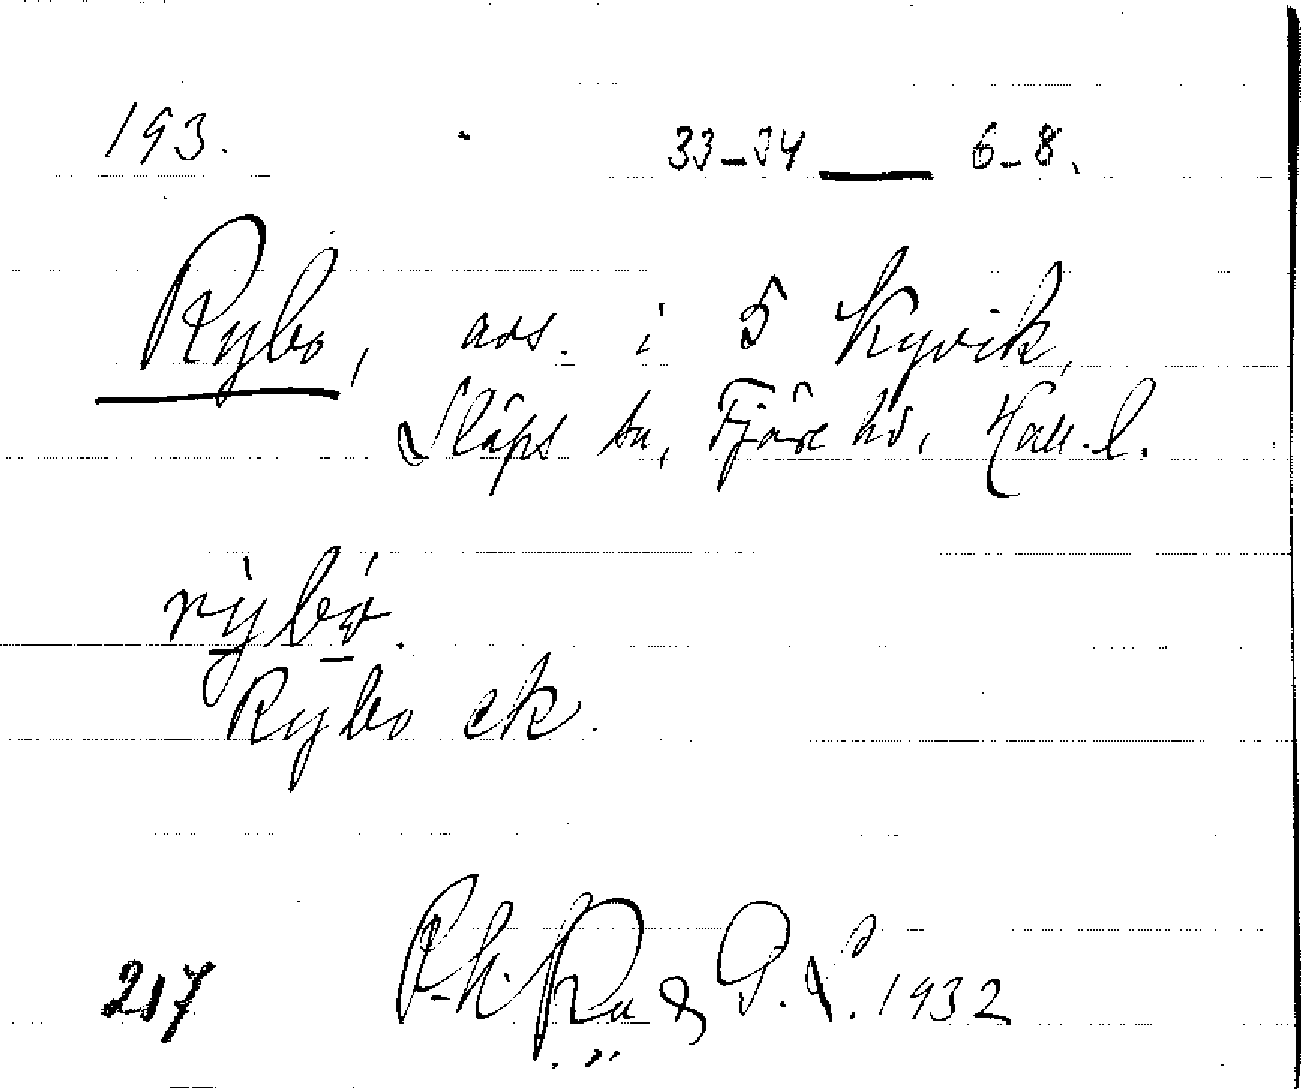 193. 33-34 — 6-8.
Rybo, avs. i 5 Kyvik,
Släps sn, Fjäre hd, Hall. l.
rỳbó.
Rybo ek.
217 1932